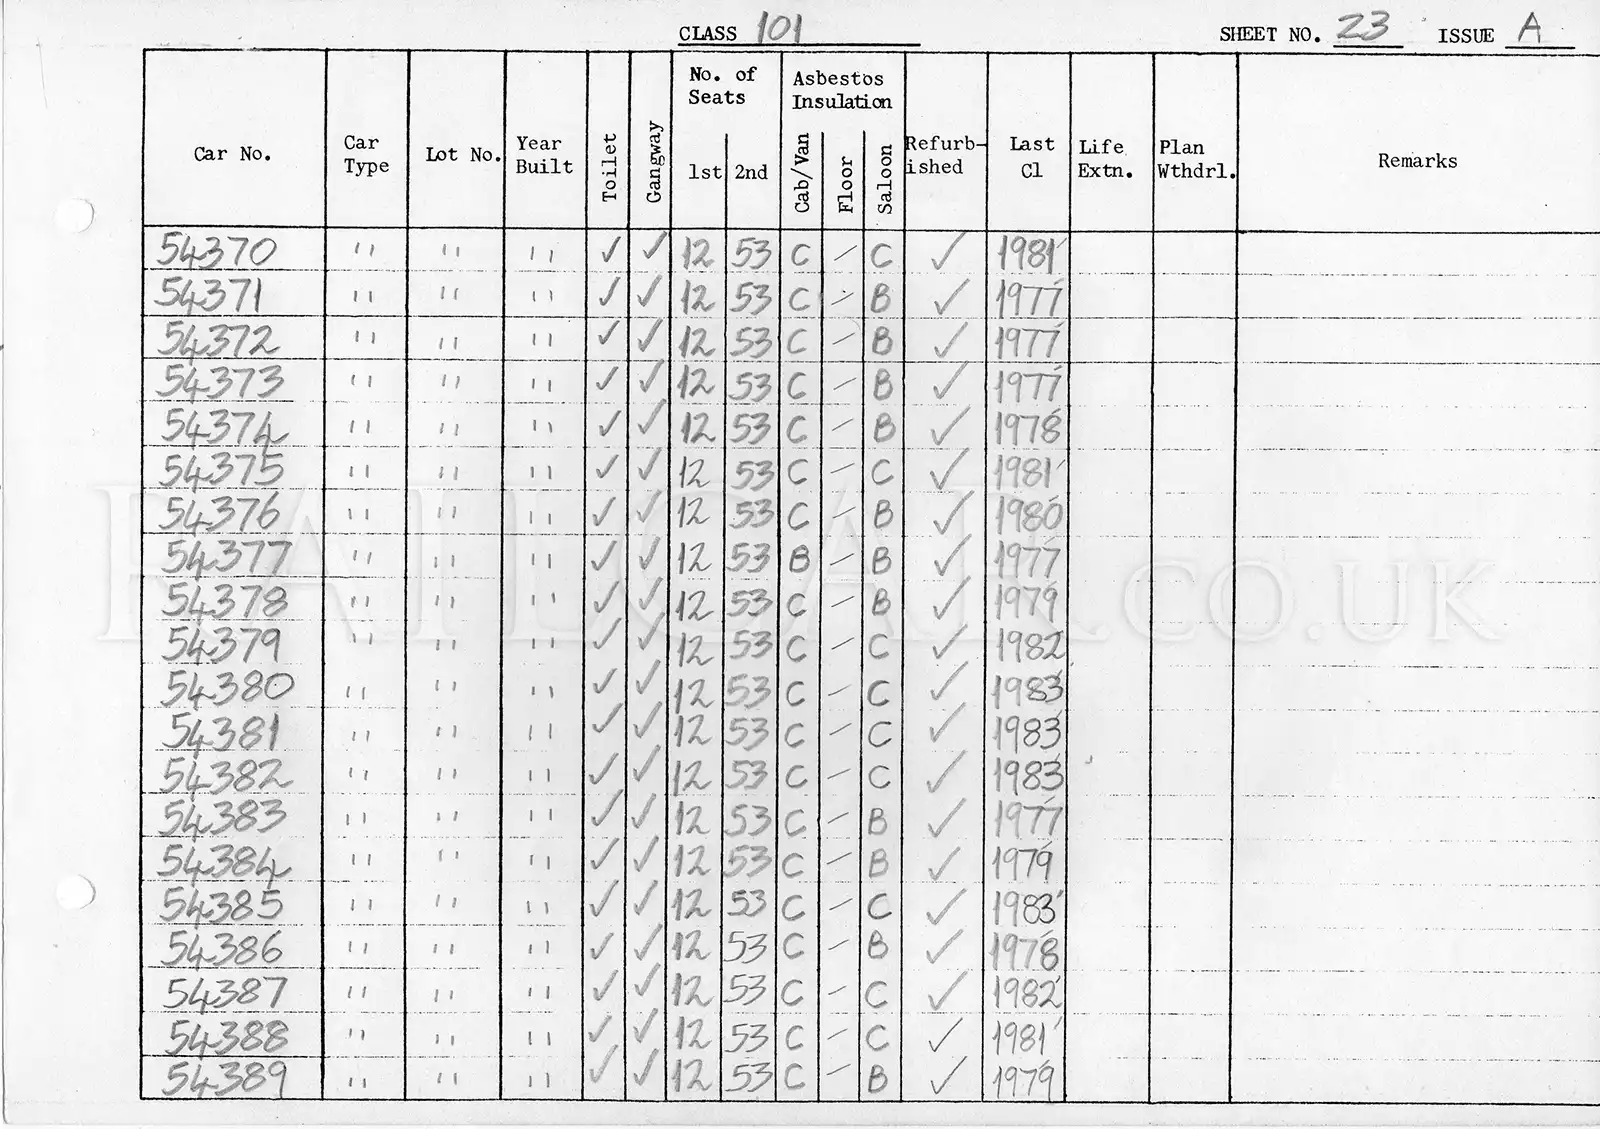 CLASS 101 SHEET NO. 23 ISSUE A
Car No. Car Type Lot No. Year Built Toilet Gangway No. of Seats 1st 2nd Asbestos Insulation Cab/Van Floor Saloon Refurb-ished Last Cl Life Extn. Plan Wthdrl. Remarks
54370 " " " ✓ ✓ 12 53 C - C ✓ 1981
54371 " " " ✓ ✓ 12 53 C - B ✓ 1977
54372 " " " ✓ ✓ 12 53 C - B ✓ 1977
54373 " " " ✓ ✓ 12 53 C - B ✓ 1977
54374 " " " ✓ ✓ 12 53 C - B ✓ 1978
54375 " " " ✓ ✓ 12 53 C - C ✓ 1981
54376 " " " ✓ ✓ 12 53 C - B ✓ 1980
54377 " " " ✓ ✓ 12 53 B - B ✓ 1977
54378 " " " ✓ ✓ 12 53 C - B ✓ 1979
RAILCAR.CO.UK
54379 " " " ✓ ✓ 12 53 C - C ✓ 1982
54380 " " " ✓ ✓ 12 53 C - C ✓ 1983
54381 " " " ✓ ✓ 12 53 C - C ✓ 1983
54382 " " " ✓ ✓ 12 53 C - C ✓ 1983
54383 " " " ✓ ✓ 12 53 C - B ✓ 1977
54384 " " " ✓ ✓ 12 53 C - B ✓ 1979
54385 " " " ✓ ✓ 12 53 C - C ✓ 1983
54386 " " " ✓ ✓ 12 53 C - B ✓ 1978
54387 " " " ✓ ✓ 12 53 C - C ✓ 1982
54388 " " " ✓ ✓ 12 53 C - C ✓ 1981
54389 " " " ✓ ✓ 12 53 C - B ✓ 1979